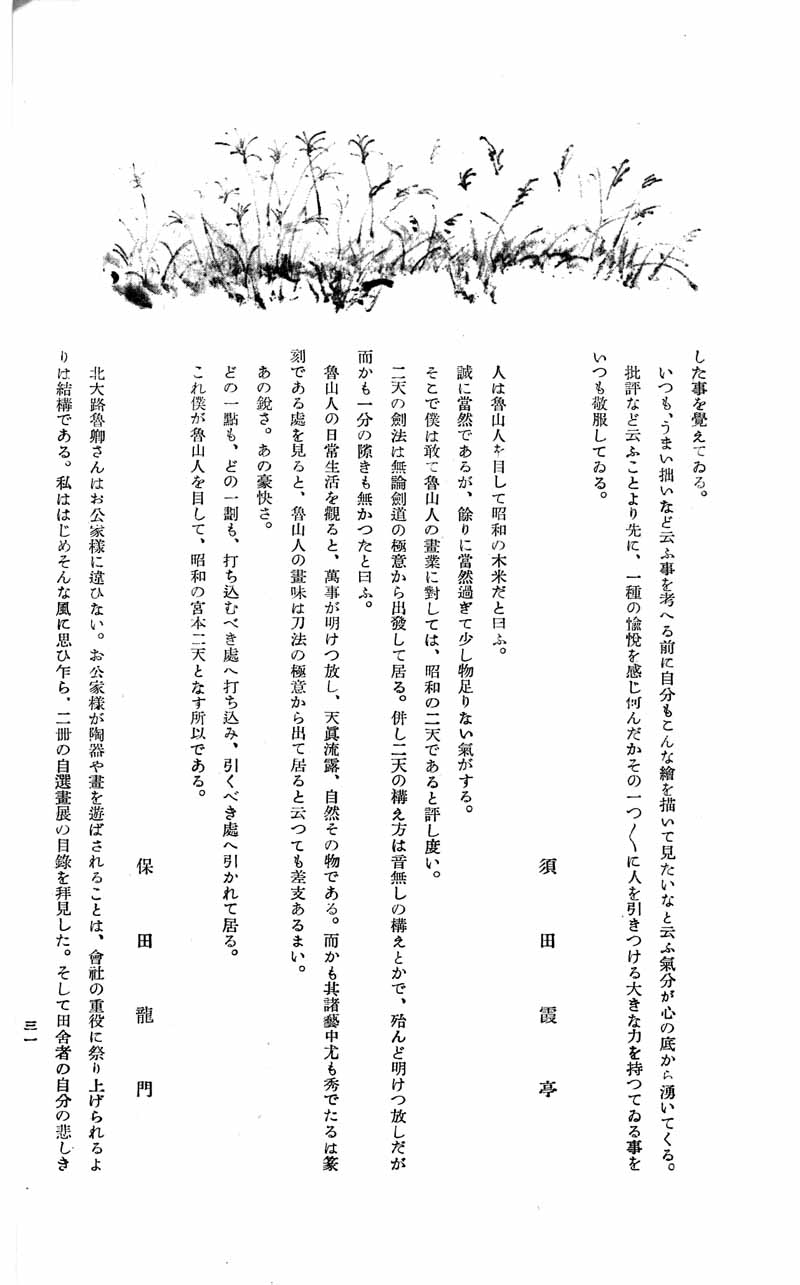 した事を覺えてゐる。
いつも、うまい拙いなど云ふ事を考へる前に自分もこんな繪を描いて見たいなと云ふ氣分が心の底から湧いてくる。
批評など云ふことより先に、一種の愉悅を感じ何んだかその一つ〱に人を引きつける大きな力を持つてゐる事を
いつも敬服してゐる。
須田霞亭
人は魯山人を目して昭和の木米だと曰ふ。
誠に當然であるが、餘りに當然過ぎて少し物足りない氣がする。
そこで僕は敢て魯山人の畫業に對しては、昭和の二天であると評し度い。
二天の劍法は無論劍道の極意から出發して居る。併し二天の構え方は音無しの構えとかで、殆んど明けつ放しだが
而かも一分の隙きも無かつたと曰ふ。
魯山人の日常生活を觀ると、萬事が明けつ放し、天眞流露、自然その物である。而かも其諸藝中尤も秀でたるは篆
刻である處を見ると、魯山人の畫味は刀法の極意から出て居ると云つても差支あるまい。
あの銳さ。あの豪快さ。
どの一點も、どの一劃も、打ち込むべき處へ打ち込み、引くべき處へ引かれて居る。
これ僕が魯山人を目して、昭和の宮本二天となす所以である。
保田龍門
北大路魯卿さんはお公家樣に違ひない。お公家樣が陶器や畫を遊ばされることは、會社の重役に祭り上げられるよ
りは結構である。私ははじめそんな風に思ひ乍ら、二冊の自選畫展の目錄を拜見した。そして田舍者の自分の悲しき
三一